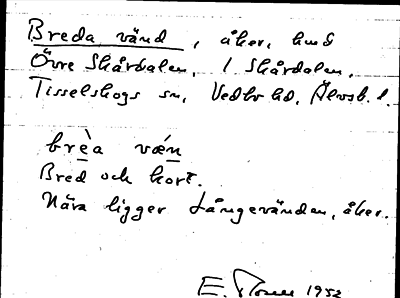 Breda vänd, åker, hmd
Övre Skårdalen, 1 Skårdalen,
Tisselskogs sn, Vedbo hd, Älvsb. l.
brèa væ´n
Bred och kort.
Nära ligger Långevänden, åker.
E. 1952